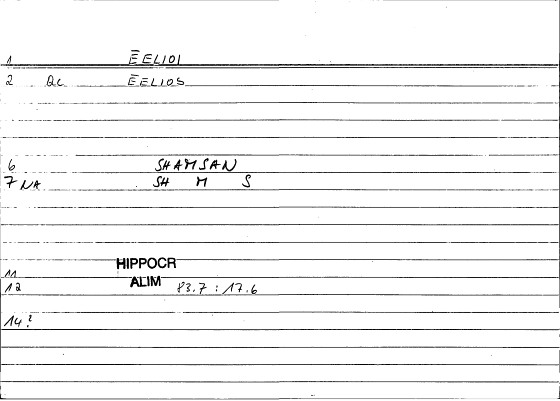 1 ĒELIOI
2 Qc ĒELIOS
6 SHAMSAN
7 NA SH M S
11 HIPPOCR
12 ALIM 83.7 : 17.6
14?